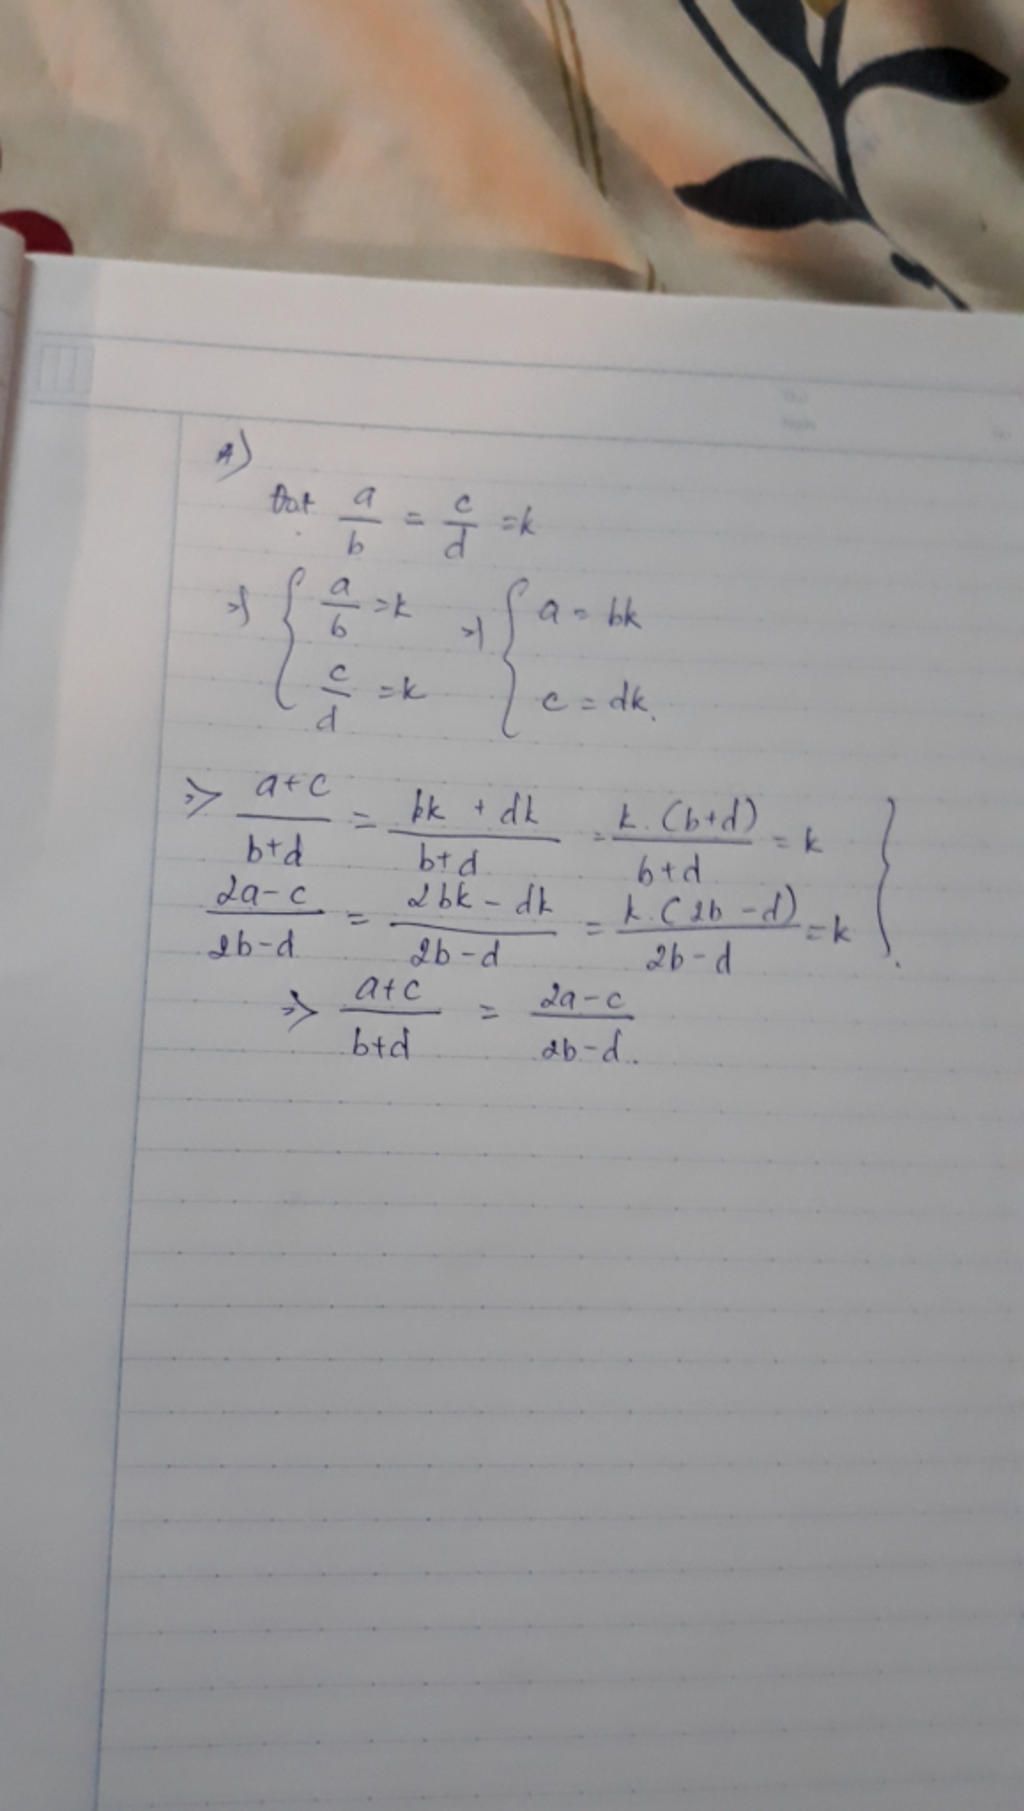 A)
Đặt a/b = c/d = k
=> { a/b = k => { a = bk
c/d = k c = dk.
=> a+c/b+d = bk + dk/b+d = k.(b+d)/b+d = k }
2a-c/2b-d = 2bk - dk/2b-d = k.(2b-d)/2b-d = k
=> a+c/b+d = 2a-c/2b-d.